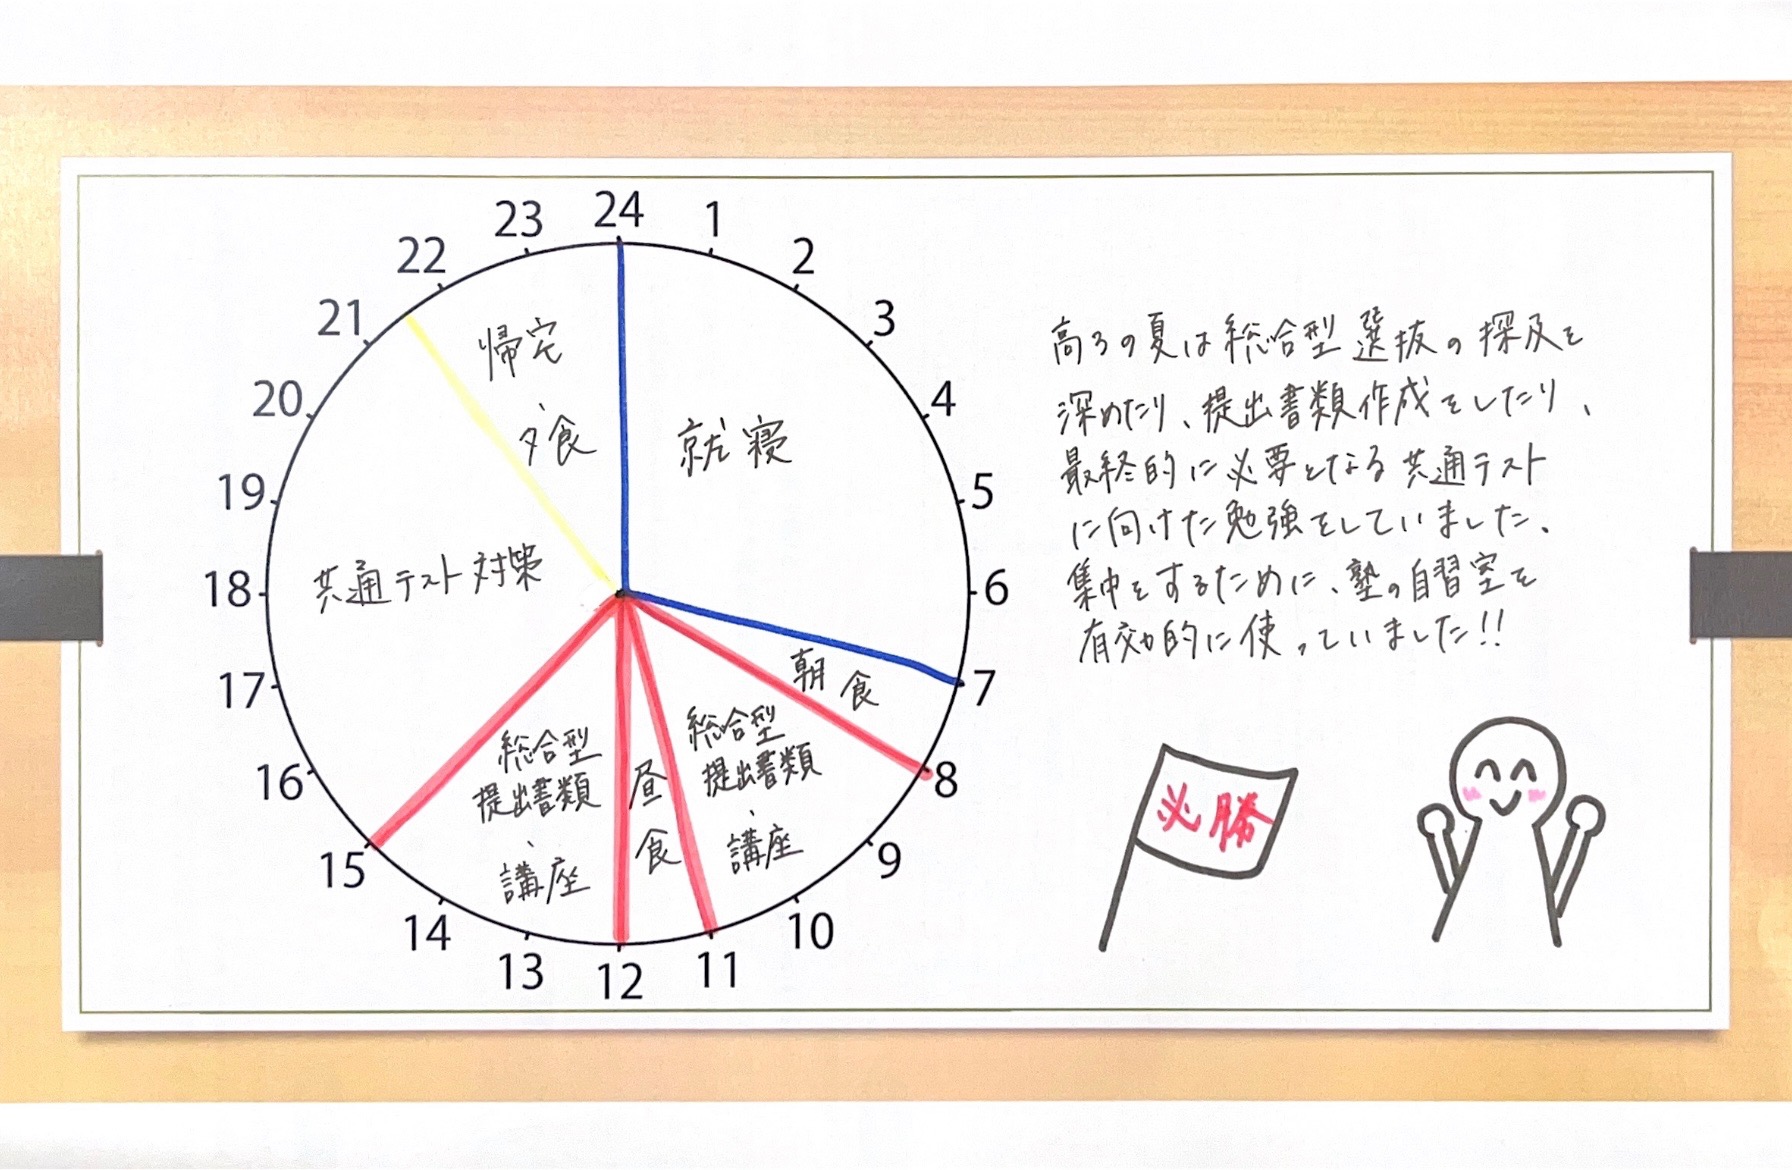 24
1
2
3
4
5
6
7
8
9
10
11
12
13
14
15
16
17
18
19
20
21
22
23
就寝
朝食
総合型
提出書類
、
講座
昼食
総合型
提出書類
、
講座
共通テスト対策
帰宅
、
夕食
高3の夏は総合型選抜の探及を
深めたり、提出書類作成をしたり、
最終的に必要となる共通テスト
に向けた勉強をしていました。
集中をするために、塾の自習室を
有効的に使っていました!!
必勝